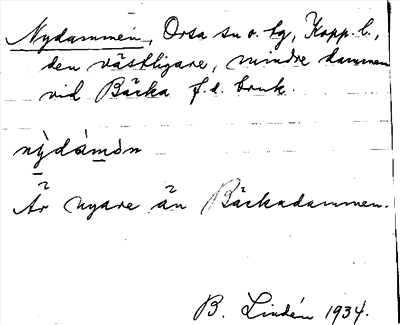 Nydammen, Orsa sn o. tg, Kopp. l.,
den västligare, mindre dammen
vid Bäcka f. d. bruk.
nỳdámȯn
Är nyare än Bäckadammen.
B. Lindén 1934.